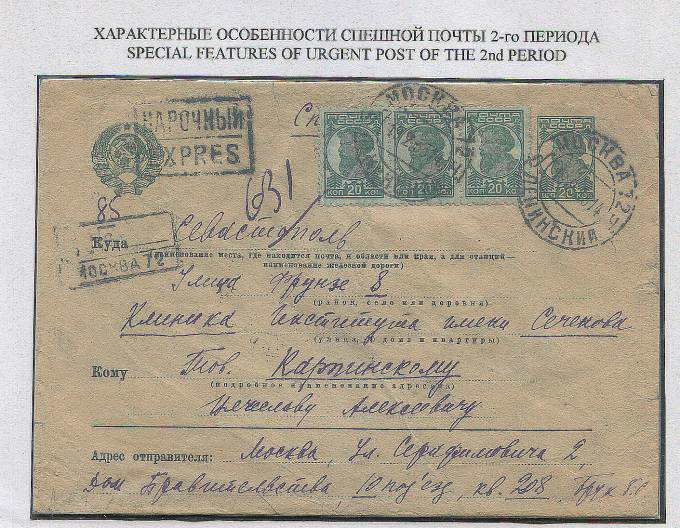 ХАРАКТЕРНЫЕ ОСОБЕННОСТИ СПЕШНОЙ ПОЧТЫ 2-го ПЕРИОДА
SPECIAL FEATURES OF URGENT POST OF THE 2nd PERIOD
НАРОЧНЫЙ
EXPRES
МОСКВА
20 КОП 20 КОП 20 КОП 20
МОСКВА 125
631
85
МОСКВА 72
Куда Севастополь
(наименование места, где находится почта, и области или края, а для станций—
наименование железной дороги)
Улица Фрунзе 8
(район, село или деревня)
Клиника Института имени Сеченова
(улица, № дома и квартиры)
Кому Тов. Карпинскому
(подробное наименование адресата)
Вячеславу Алексеевичу
Адрес отправителя: Москва, ул. Серафимовича 2,
Дом Правительства, 10 под'езд, кв. 208